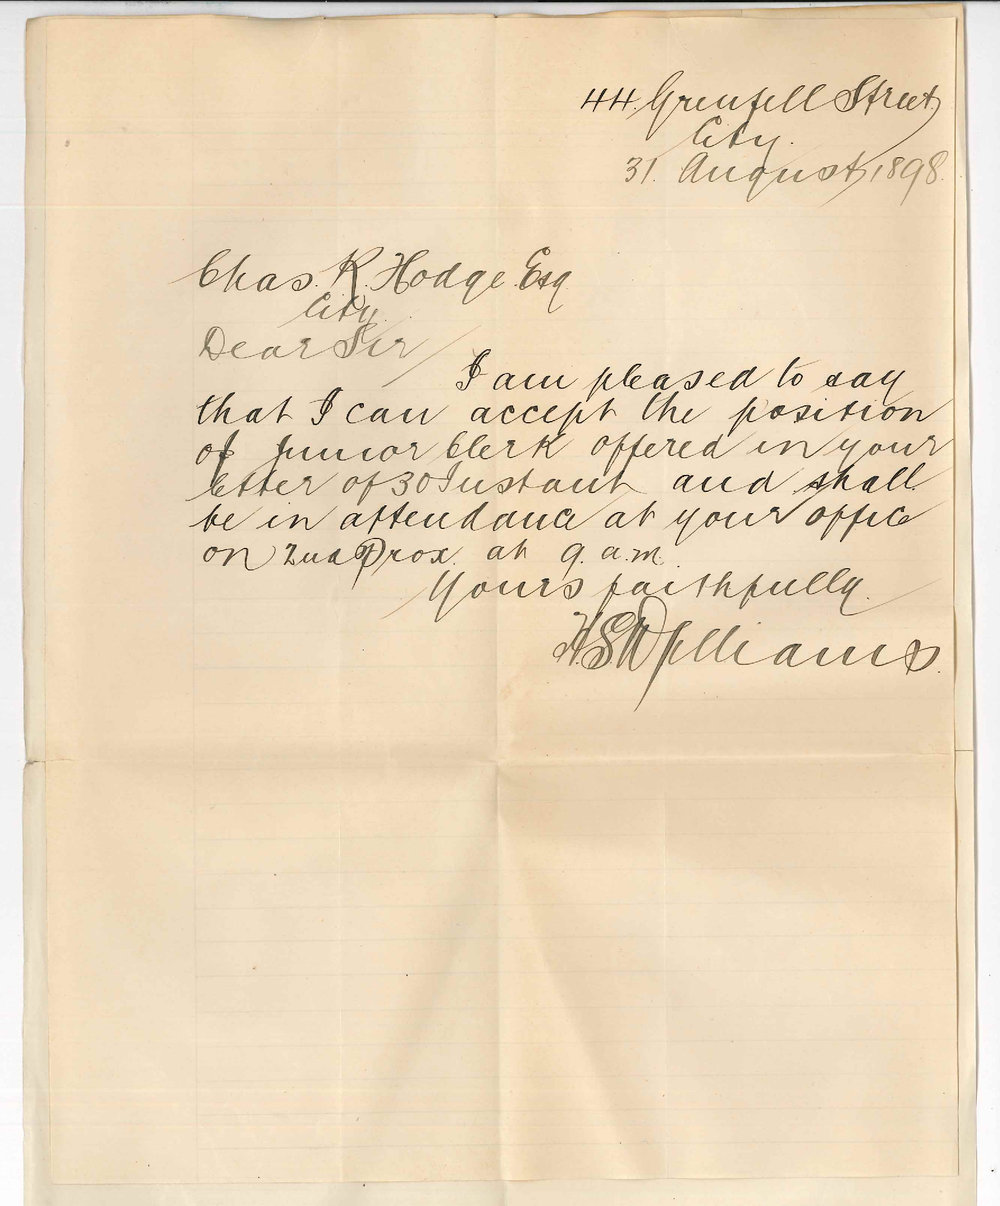 44. Grenfell Street
City.
31. August, 1898.
Chas. R. Hodge. Esq
City.
Dear Sir
I am pleased to say
that I can accept the position
of Junior Clerk offered in your
letter of 30 Instant and shall
be in attendance at your office
on 2nd Prox. at 9. a.m.
Yours faithfully.
H.S. Williams.